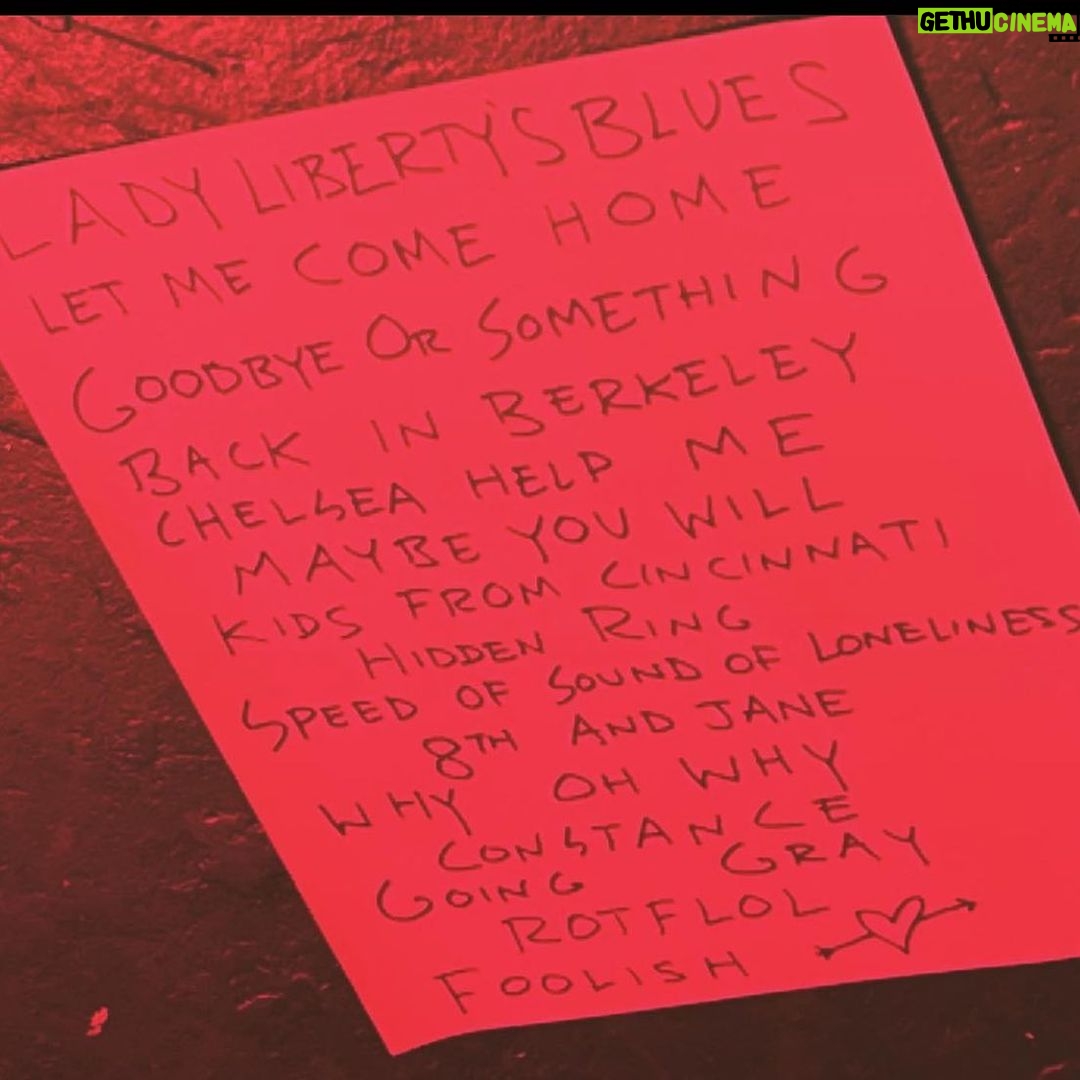 GETHUCINEMA
LADY LIBERTY'S BLUES
LET ME COME HOME
GOODBYE OR SOMETHING
BACK IN BERKELEY
CHELSEA HELP ME
MAYBE YOU WILL
KIDS FROM CINCINNATI
HIDDEN RING
SPEED OF SOUND OF LONELINESS
8TH AND JANE
WHY OH WHY
CONSTANCE
GOING GRAY
ROTFLOL
FOOLISH